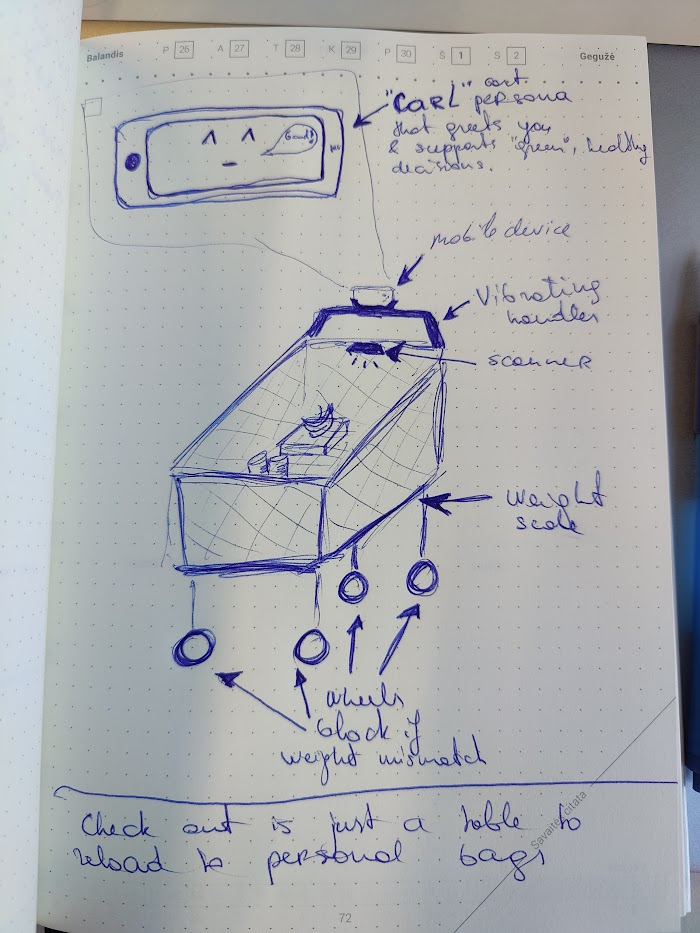 Balandis P 26 A 27 T 28 K 29 P 30 Š 1 S 2 Gegužė
"CARL" cart
persona
that greets you
& supports "green", healthy
decisions.
mobile device
Vibrating
handles
scanner
weight
scale
wheels
block if
weight mismatch
Check out is just a table to
reload to personal bags
Savaitės citata
72